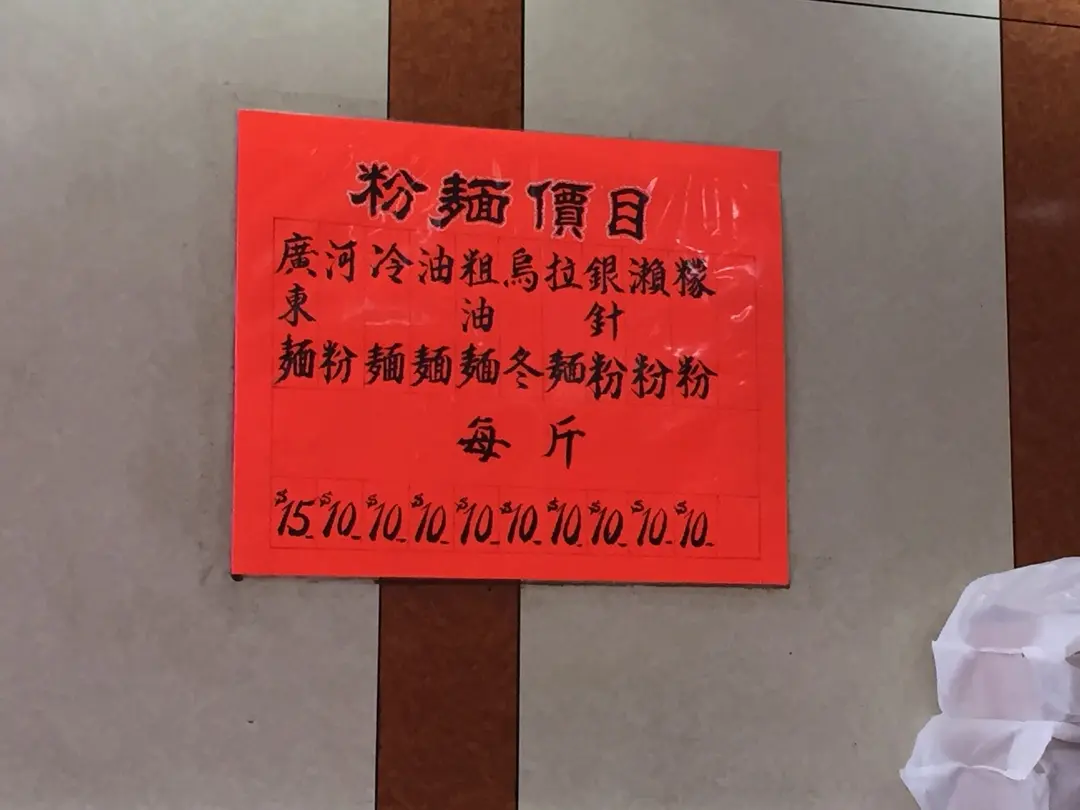 粉麵價目
廣東麵
河粉
冷麵
油麵
粗油麵
烏冬
拉麵
銀針粉
瀨粉
粉
每斤
$15 $10 $10 $10 $10 $10 $10 $10 $10 $10